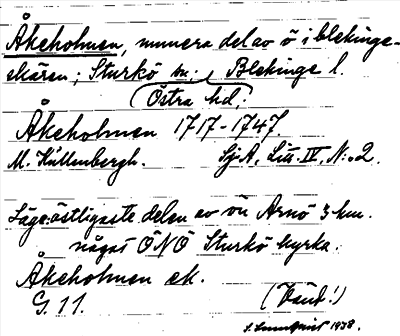 Åkeholmen, numera del av ö i blekinge-
skären; Sturkö sn; Blekinge l.
(Östra hd;
Åkeholmen 1717-1747
M. Kullenbergh. SjA, Litt. IV, N:o 2.
Läge: östligaste delen av ön Arnö 3 km.
något ÖNÖ Sturkö kyrka.
Åkeholmen ek.
G. 11. (Vänd!)
S. Lundqvist 1938.